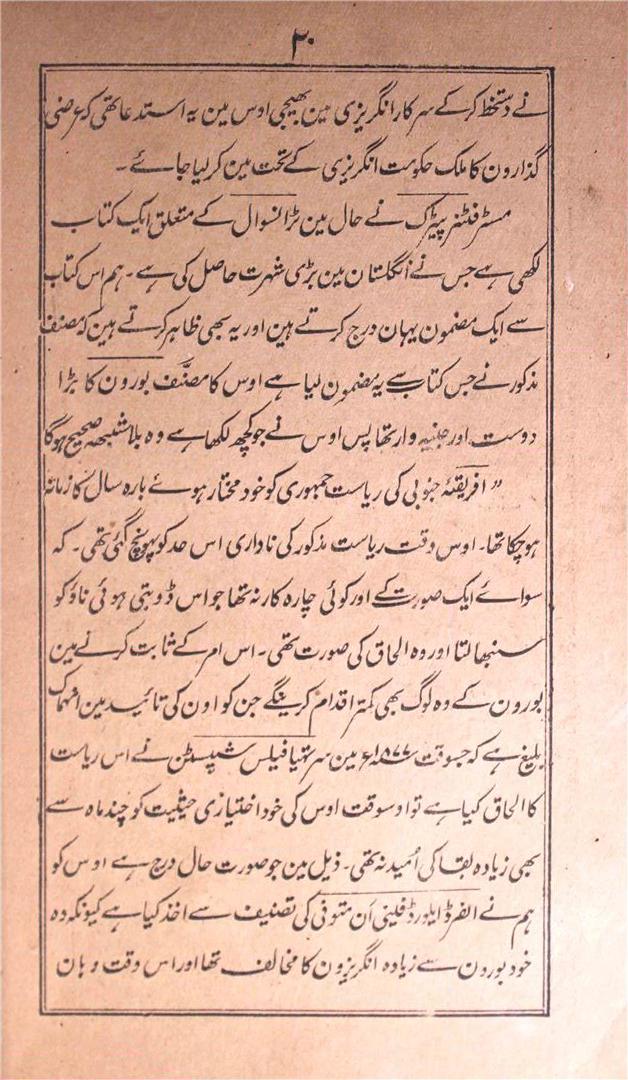 ۲۰
نے دستخط کرکے سرکار انگریزی مین بھیجی اوس مین یہ استدعا تھی کہ عرضی
گذارون کا ملک حکومت انگریزی کے تحت مین کر لیا جائے ۔
مسٹر فٹنر پیٹرک نے حال مین ٹرانسوال کے متعلق ایک کتاب
لکھی ہے جس نے انگلستان مین بڑی شہرت حاصل کی ہے ۔ ہم اس کتاب
سے ایک مضمون یہان درج کرتے ہین اور یہ بھی ظاہر کرتے ہین کہ مصنف
مذکور نے جس کتاب سے یہ مضمون لیا ہے اوس کا مصنّف بورون کا بڑا
دوست اور جنبہ وار تھا پس اوس نے جو کچھ لکھا ہے وہ بلا شبھہ صحیح ہوگا
” افریقۂ جنوبی کی ریاست جمہوری کو خود مختار ہوئے بارہ سال کا زمانہ
ہوچکا تھا ۔ اوس وقت ریاست مذکور کی ناداری اس حد کو پہونچ گئی تھی ۔ کہ
سوائے ایک صورت کے اور کوئی چارہ کار نہ تھا جو اس ڈوبتی ہوئی ناؤ کو
سنبھالتا اور وہ الحاق کی صورت تھی ۔ اس امر کے ثابت کرنے مین
بورون کے وہ لوگ بھی کمتر اقدام کرینگے جن کو اون کی تائید مین انہماک
بلیغ ہے کہ جسوقت ۱۸۷۷ء مین سر تھیا فیلس شپسٹن نے اس ریاست
کا الحاق کیا ہے تو اوسوقت اوس کی خود اختیاری حیثیت کو چند ماہ سے
بھی زیادہ بقا کی اُمید نہ تھی ۔ ذیل مین جو صورت حال درج ہے اوس کو
ہم نے الفرڈ ایلورڈ فلینی اَن متوفی کی تصنیف سے اخذ کیا ہے کیونکہ وہ
خود بورون سے زیادہ انگریزون کا مخالف تھا اور اس وقت وہان